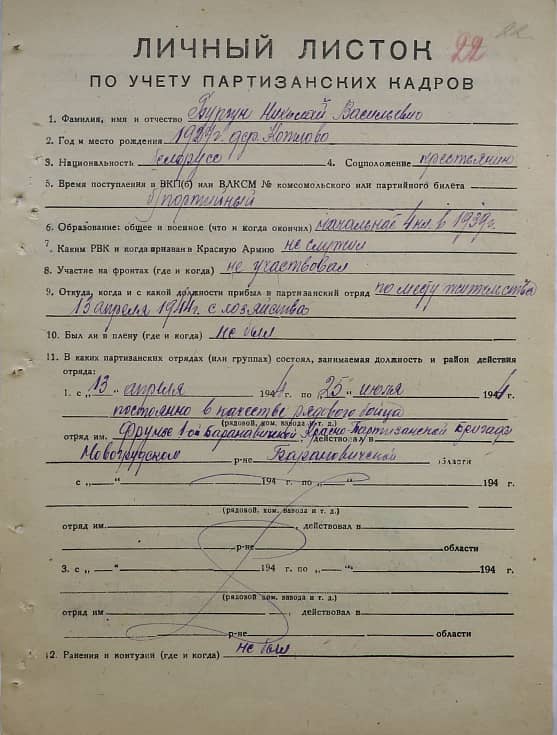 22
22
ЛИЧНЫЙ ЛИСТОК
ПО УЧЕТУ ПАРТИЗАНСКИХ КАДРОВ
1. Фамилия, имя и отчество Бурчун Николай Васильевич
2. Год и место рождения 1929 г. дер. Котлово
3. Национальность белорусс 4. Соцположение крестьянин
5. Время поступления в ВКП(б) или ВЛКСМ № комсомольского или партийного билета
б/партийный
6. Образование: общее и военное (что и когда окончил) начальное 4 кл. в 1939 г.
7. Каким РВК и когда призван в Красную Армию не служил
8. Участие на фронтах (где и когда) не участвовал
9. Откуда, когда и с какой должности прибыл в партизанский отряд по месту жительства
13 апреля 1944 г. с хозяйства
10. Был ли в плену (где и когда) не был
11. В каких партизанских отрядах (или группах) состоял, занимаемая должность и район действия
отряда:
1. с „13“ апреля 1944 г. по „25“ июля 1944 г.
постоянно в качестве рядового бойца
(рядовой, ком. взвода и т. д.)
отряд им. Фрунзе 1-ой Барановичской Красно-Партизанской бригады, действовал в
Новогрудском р-не Барановичской области
с „ — “ 194 г. по „ — “ 194 г.
(рядовой, ком. взвода и т. д.)
отряд им. , действовал в
р-не области
3. с „ — “ 194 г. по „ — “ 194 г.
(рядовой, ком. взвода и т. д.)
отряд им , действовал в
р-не области
12. Ранения и контузии (где и когда) не был